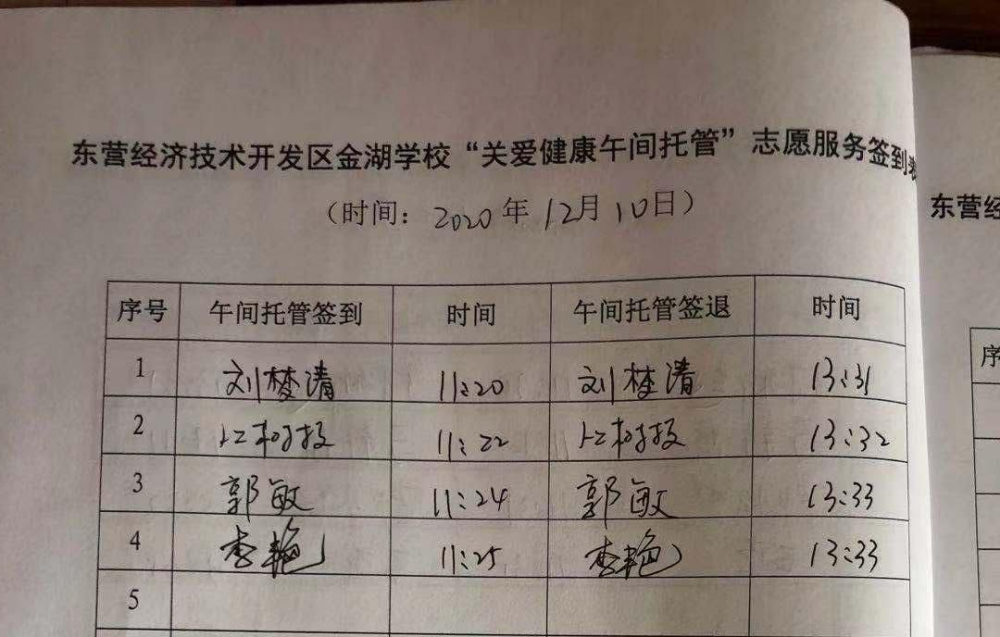 东营经济技术开发区金湖学校“关爱健康午间托管”志愿服务签到表
(时间: 2020年12月10日)
序号 午间托管签到 时间 午间托管签退 时间
1 刘梦清 11:20 刘梦清 13:31
2 11:22 13:32
3 郭敏 11:24 郭敏 13:33
4 李艳 11:25 李艳 13:33
5
东营经
序